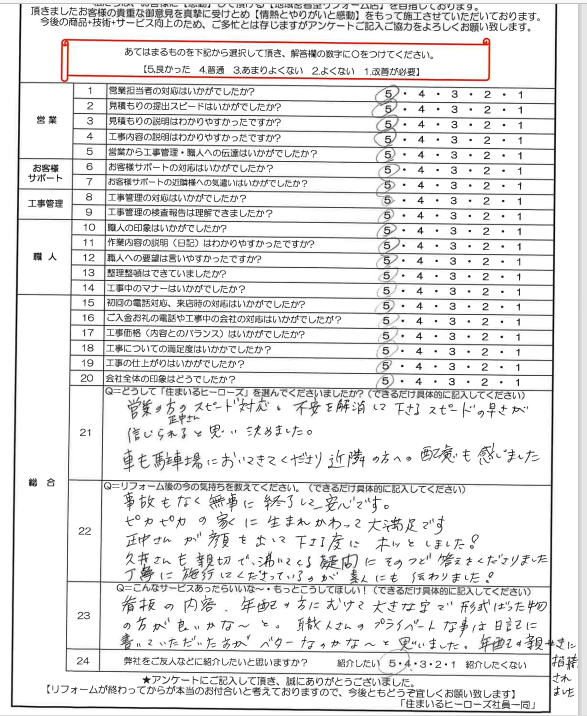 頂きましたお客様の貴重な御意見を真摯に受けとめ【情熱とやりがいと感動】をもって施工させていただいております。
今後の商品+技術+サービス向上のため、ご多忙とは存じますがアンケートご記入協力をよろしくお願い致します。
あてはまるものを下記から選択して頂き、解答欄の数字に○をつけてください。
【5.良かった 4.普通 3.あまりよくない 2.よくない 1.改善が必要】
営業
1 営業担当者の対応はいかがでしたか? 5・4・3・2・1
2 見積もりの提出スピードはいかがでしたか? 5・4・3・2・1
3 見積もりの説明はわかりやすかったですか? 5・4・3・2・1
4 工事内容の説明はわかりやすかったですか? 5・4・3・2・1
5 営業から工事管理・職人への伝達はいかがでしたか? 5・4・3・2・1
お客様サポート
6 お客様サポートの対応はいかがでしたか? 5・4・3・2・1
7 お客様サポートの近隣様への気遣いはいかがでしたか? 5・4・3・2・1
工事管理
8 工事管理の対応はいかがでしたか? 5・4・3・2・1
9 工事管理の検査報告は理解できましたか? 5・4・3・2・1
職人
10 職人の印象はいかがでしたか? 5・4・3・2・1
11 作業内容の説明(日記)はわかりやすかったですか? 5・4・3・2・1
12 職人への要望は言いやすかったですか? 5・4・3・2・1
13 整理整頓はできていましたか? 5・4・3・2・1
14 工事中のマナーはいかがでしたか? 5・4・3・2・1
総合
15 初回の電話対応、来店時の対応はいかがでしたか? 5・4・3・2・1
16 ご入金お礼の電話や工事中の会社の対応はいかがでしたが? 5・4・3・2・1
17 工事価格(内容とのバランス)はいかがでしたか? 5・4・3・2・1
18 工事についての満足度はいかがでしたか? 5・4・3・2・1
19 工事の仕上がりはいかがでしたか? 5・4・3・2・1
20 会社全体の印象はどうでしたか? 5・4・3・2・1
21 Q=どうして「住まいるヒーローズ」を選んでくださいましたか?(できるだけ具体的に記入してください)
営業の方のスピード対応。不安を解消して下さるスピードの早さが
正中さん
信じられると思い決めました。
車も駐車場においてきてくださり近隣の方への配慮も感じました
22 Q=リフォーム後の今の気持ちを教えてください。(できるだけ具体的に記入してください)
事故もなく無事に終了して安心です。
ピカピカの家に生まれかわって大満足です
正中さんが顔を出して下さる度にホッとしました!
久井さんも親切で、沸いてくる疑問にそのつど答えてくださりました
丁寧に施行してくださっているのが素人にも伝わりました!
23 Q=こんなサービスあったらいいな~・もっとこうしてほしい!(できるだけ具体的に記入してください)
看板の内容、年配の方にむけて大きな字で形式ばった物
の方が良いかな~と。職人さんのプライベートな事は日記に
書いていただいた方がベターなのかな~と思いました。年配の親せきに
指摘
され
ました
24 弊社をご友人などに紹介したいと思いますか? 紹介したい 5・4・3・2・1 紹介したくない
★アンケートにご記入して頂き、誠にありがとうございました。
【リフォームが終わってからが本当のお付合いと考えておりますので、今後ともどうぞ宜しくお願い致します】
「住まいるヒーローズ社員一同」